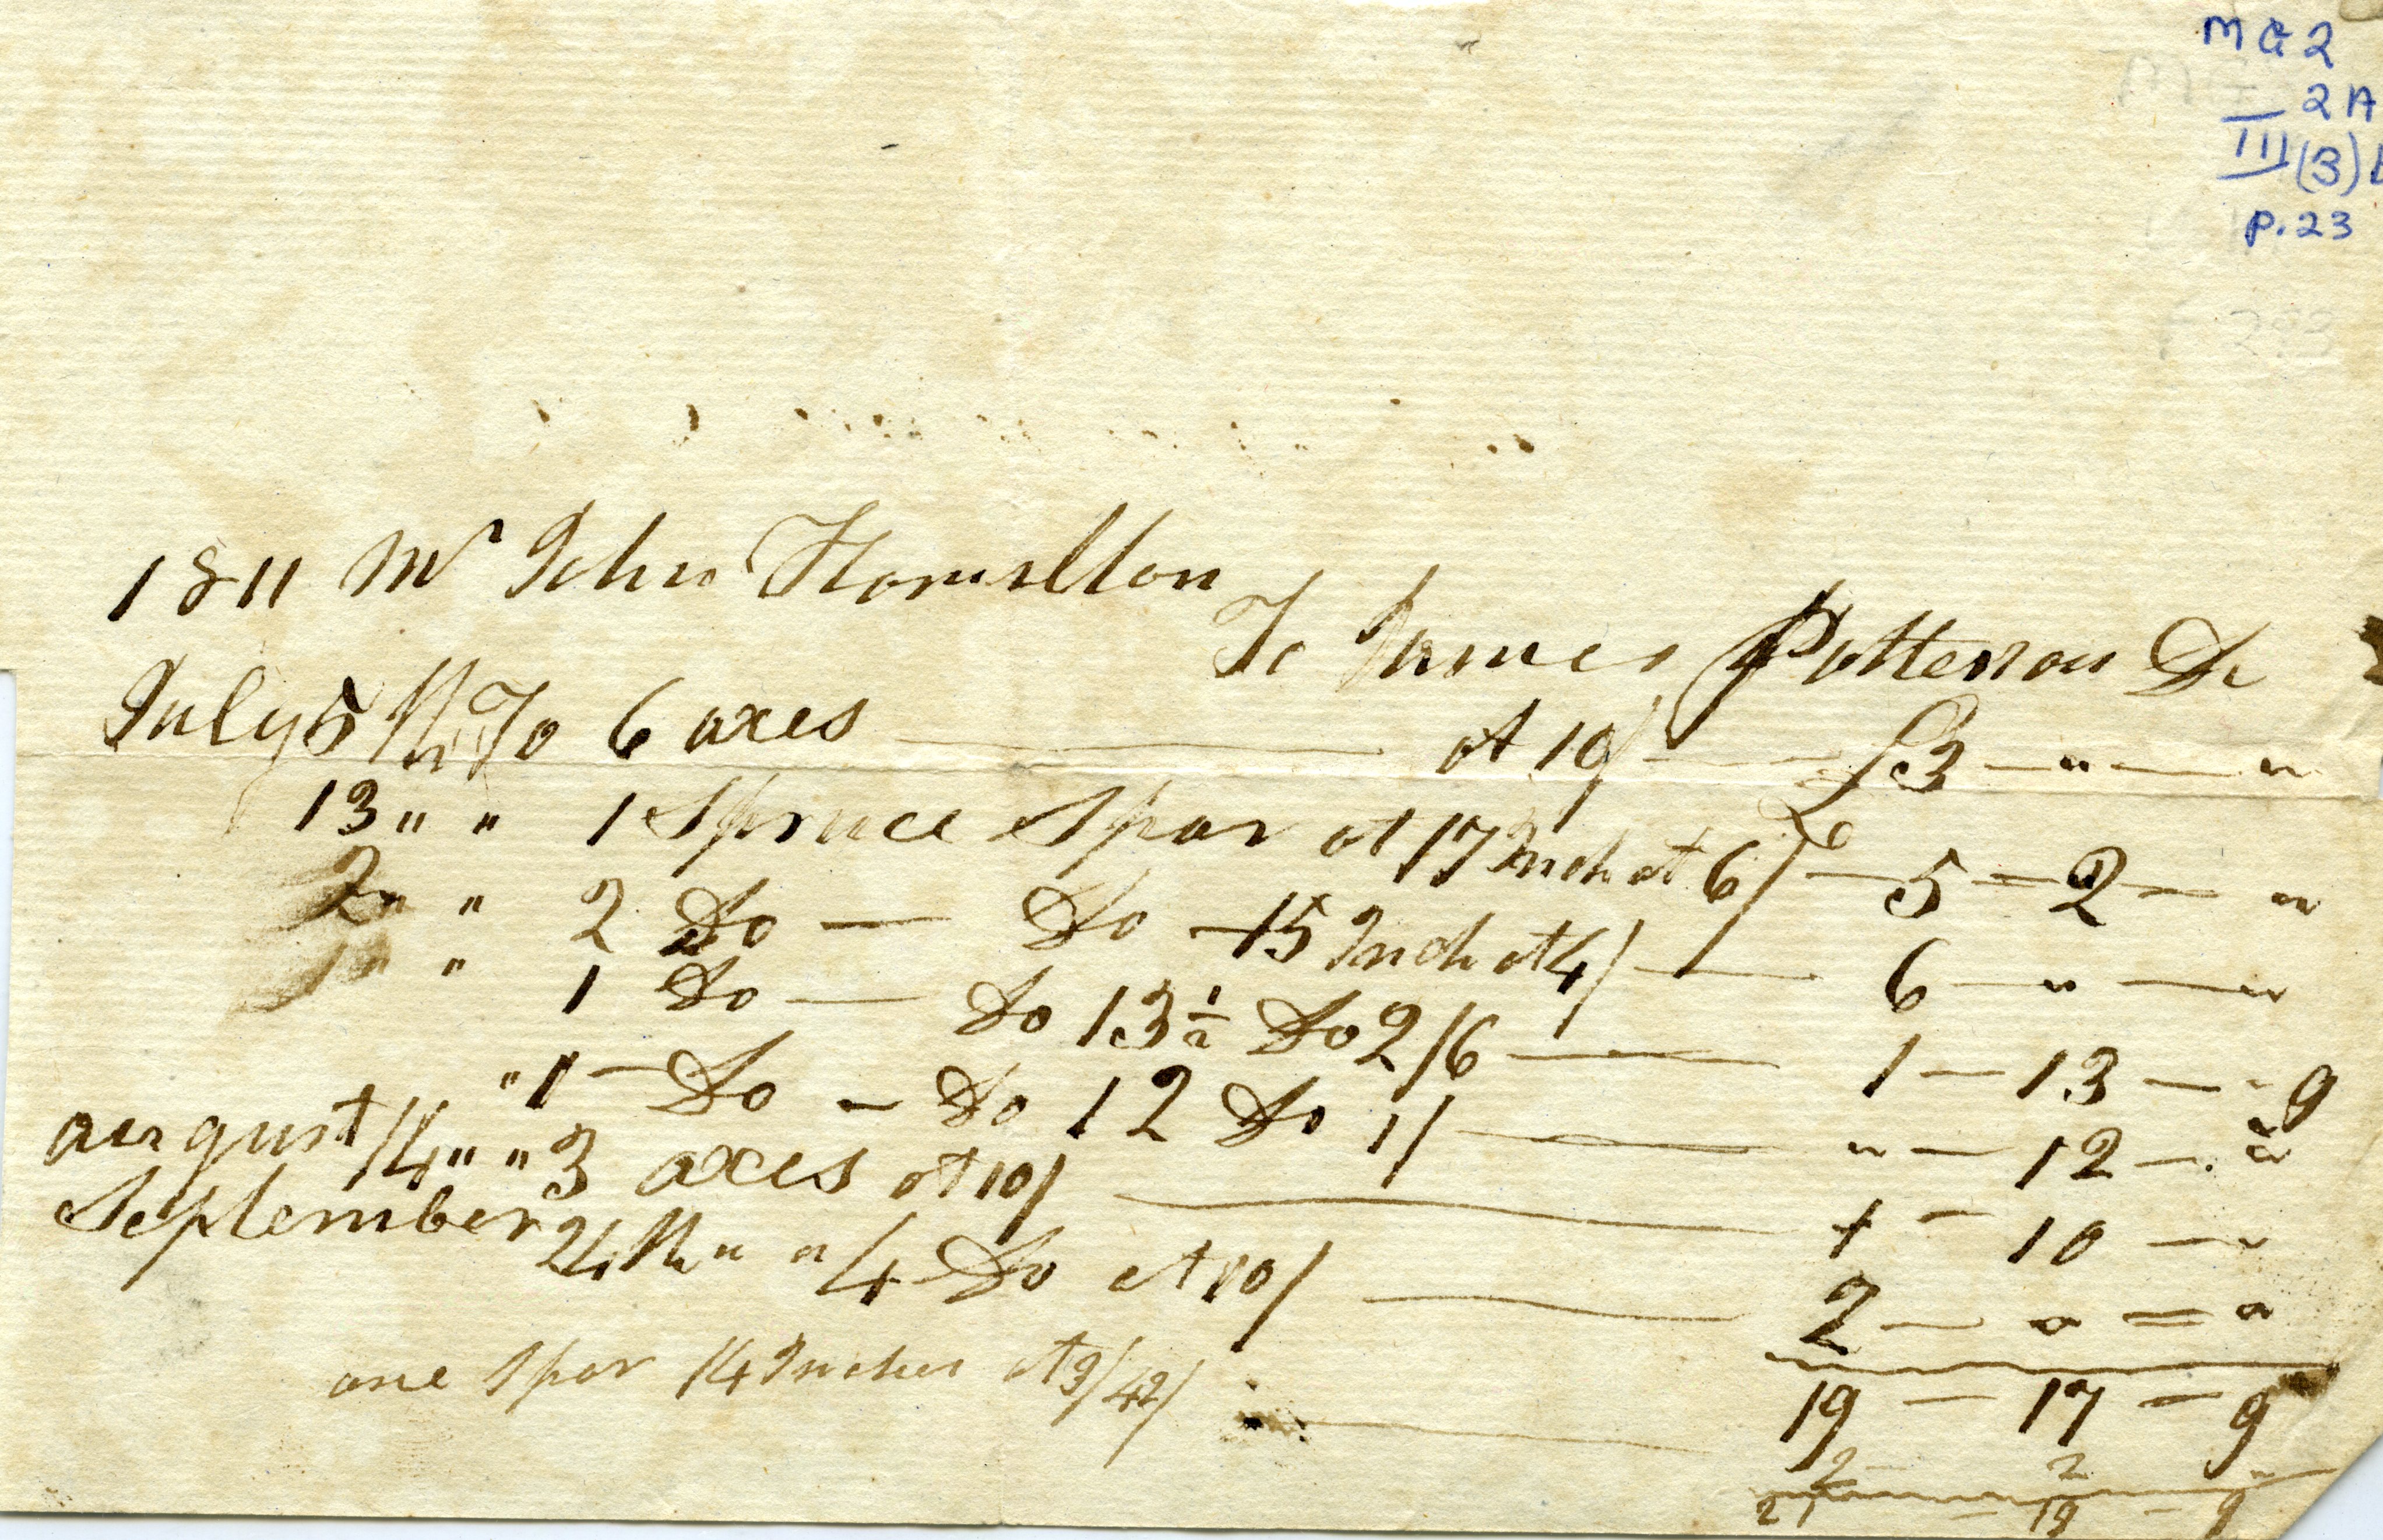 MG2
2A
III(3)
P.23
1811 Mr John Hamilton
To James Patterson Dr
July 5th To 6 axes — at 10/ — £3 — " — "
13 " " 1 Spruce Spar at 17 Inch at 6/ — 5 — 2 — "
2 " " 2 Do — Do — 15 Inch at 4/ — 6 — " — "
1 " " 1 Do — Do 13½ Do 2/6 — 1 — 13 — 9
" 1 — Do — Do 12 Do 1/ — " — 12 — "
august 14 " " 3 axes at 10/ — 1 — 10 — "
September 24th " " 4 Do at 10/ — 2 — " = "
19 — 17 — 9
one Spar 14 Inches at 3/ 42/ — 2 2 "
21 — 19 — 9